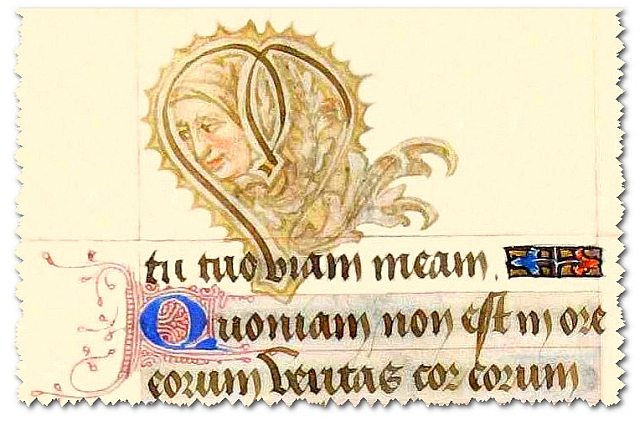 tu tuo viam meam.
Quoniam non est in ore
eorum veritas cor eorum